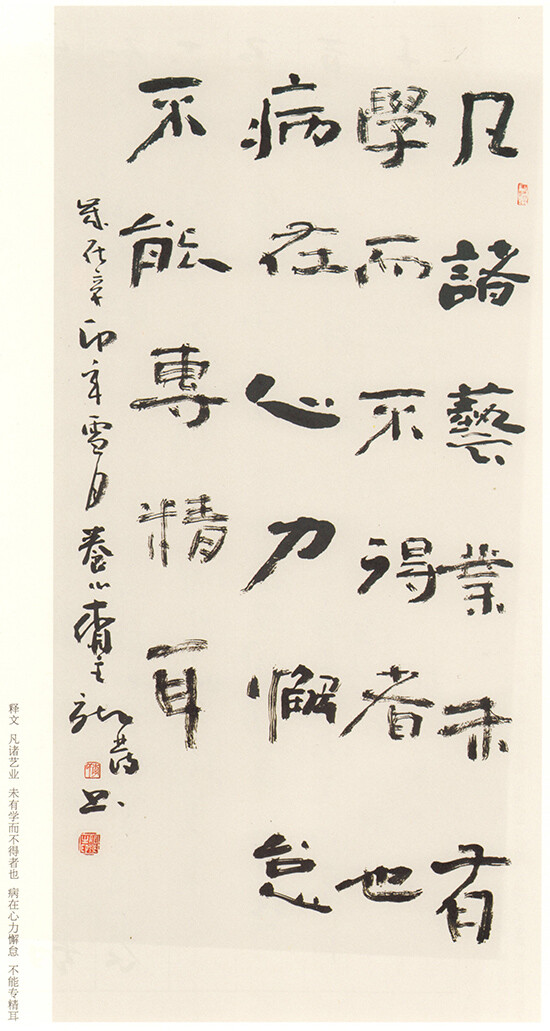 凡諸藝業未有
學而不得者也
病在心力懈怠
不能專精耳
歲在辛卯年雪月養心齋主
书
释文 凡诸艺业 未有学而不得者也 病在心力懈怠 不能专精耳